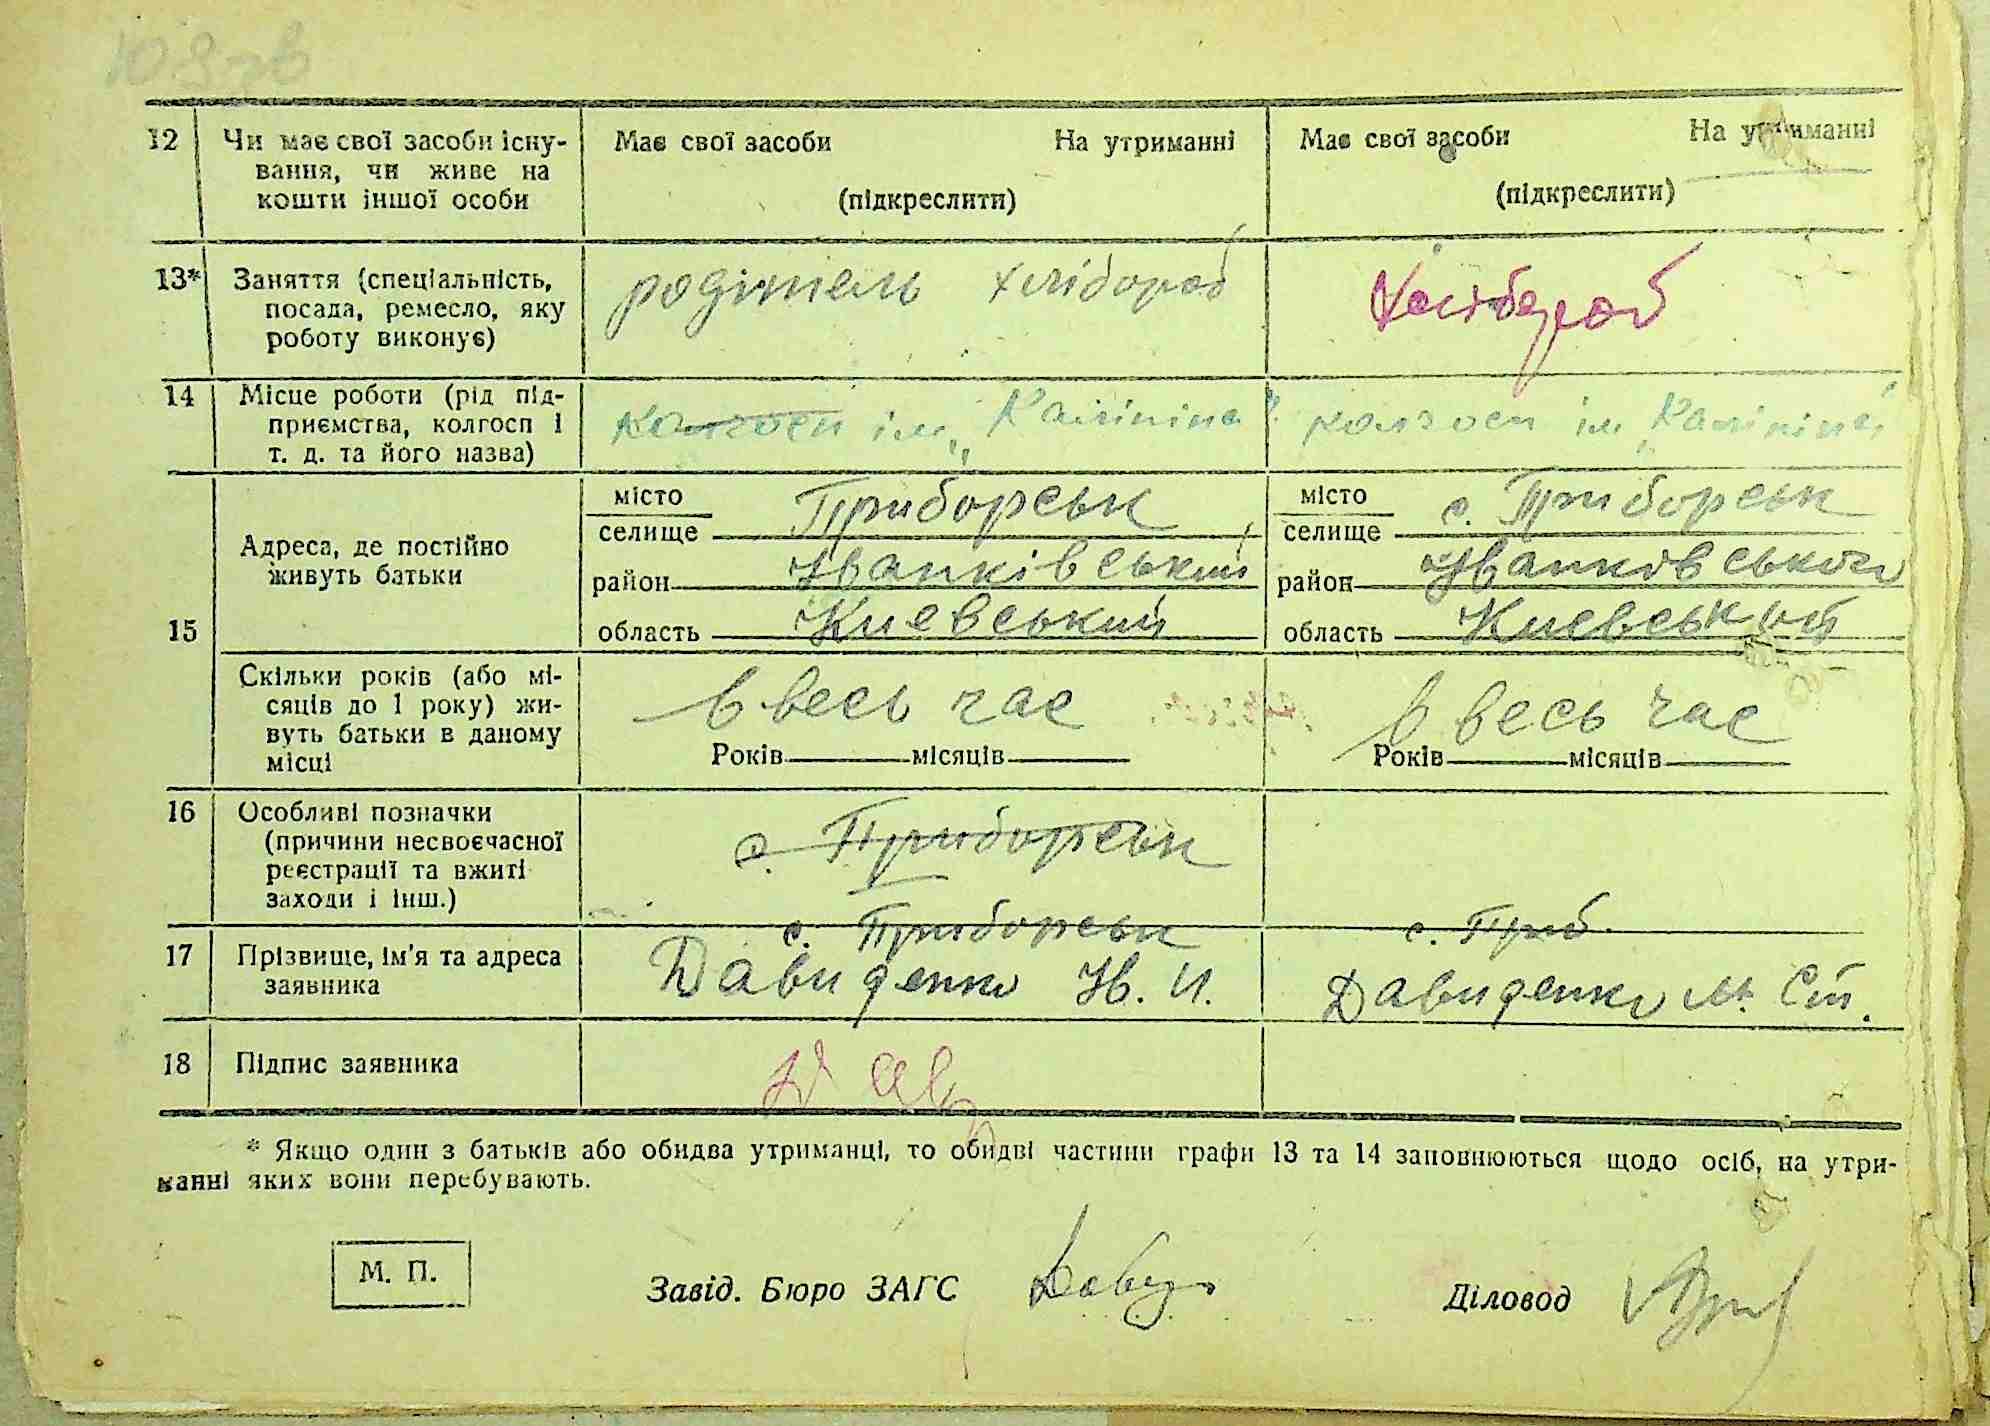 12 Чи має свої засоби існу- Має свої засоби На утриманні Має свої засоби На утриманні
вання, чи живе на
кошти іншої особи (підкреслити) (підкреслити)
13* Заняття (спеціальність, родітель хлібороб Хлібороб
посада, ремесло, яку
роботу виконує)
14 Місце роботи (рід під-
приємства, колгосп і колгосп ім. „Калініна" колгосп ім „Калініна"
т. д. та його назва)
15 Адреса, де постійно
живуть батьки
місто Приборськ місто с. Приборськ
селище селище
район Іванківський район Іванківського
область Киевський область Киевський
Скільки років (або мі-
сяців до 1 року) жи- Ввесь час Ввесь час
вуть батьки в даному Років місяців Років місяців
місці
16 Особливі позначки
(причини несвоєчасної с. Приборськ
реєстрації та вжиті
заходи і інш.)
с. Приборськ с. Приб.
17 Прізвище, ім'я та адреса Давиденко Ів. И. Давиденко М. Ст.
заявника
18 Підпис заявника Дав
* Якщо один з батьків або обидва утриманці, то обидві частини графи 13 та 14 заповнюються щодо осіб, на утри-
манні яких вони перебувають.
М. П. Завід. Бюро ЗАГС Діловод